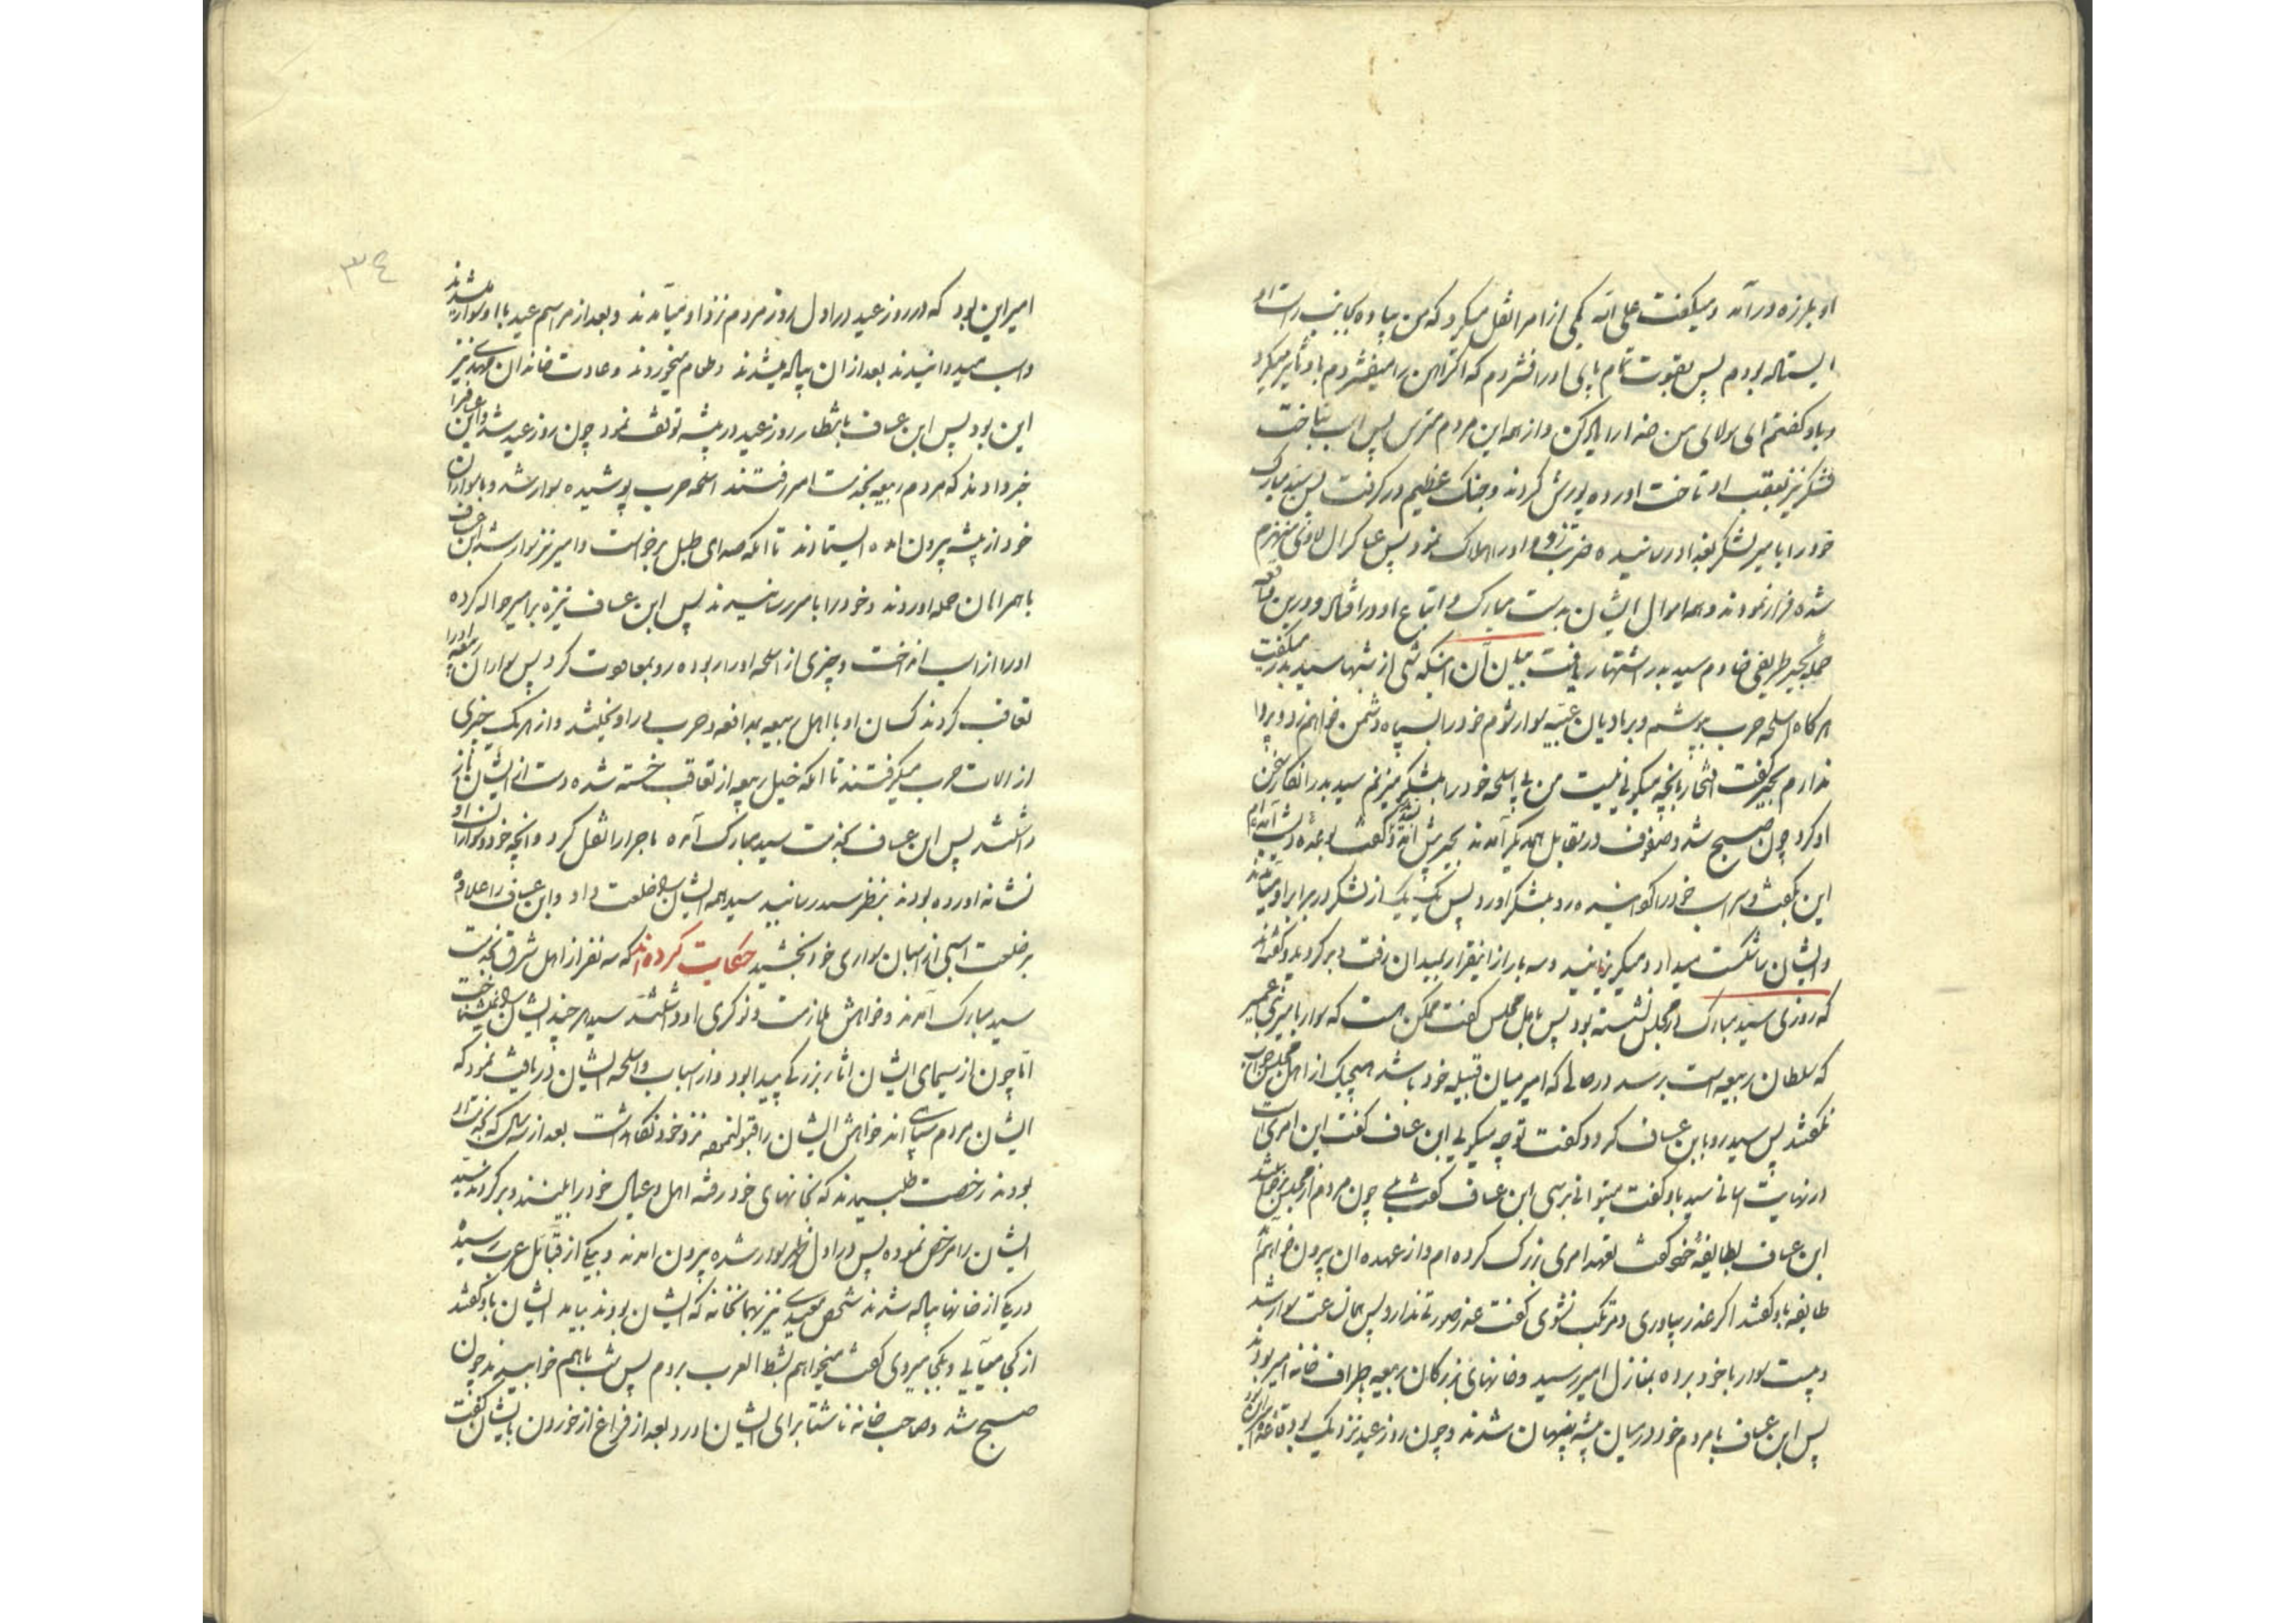 او بلرزه در آمد و میگفت علی الله یکی از امرا نقل میکرد که من پیاده بجانب راست او
ایستاده بودم پس بقوت تمام پای او را فشردم که اگر آهن را میفشردم باو تأثیر میکرد
و باو گفتم ای مولای من خدا را یاد کن و از همه این مردم مترس پس اسب بتاخت
لشکر نیز بعقب او تاخت آورده یورش کردند و جنگ عظیم در گرفت پس سید مبارک
خود را بامیر لشکر بغداد رسانیده ضربتی زد و او را هلاک نمود پس عساکر منهزم
شده فرار نمودند و همه اموال ایشان بدست مبارک و اتباع او در افتاد و درین واقعه
بجیر ضادم سید بدر اشتهار یافت بیان آن اینکه شبی از شبها سید بدر میگفت
هرگاه اسلحه حرب بپوشم و بر مادیان سوار شوم خود را بسپاه دشمن خواهم زد و پروا
ندارم بجیر گفت افتخار بانچه میکنی نیست من بی اسلحه خود را بلشکر میزنم سید بدر انکار سخن
او کرد چون صبح شد و صفوف در مقابل همدیگر آمدند بجیر پیش آمد و گفت بوعده دیشب آمده ام
این بگفت و سر اسب خود را گردانیده رو بلشکر آورد پس یک یک از لشکر در برابر او میآمدند
و ایشان را شکست میداد و میگریزانید و سه بار از اینقرار بمیدان رفت و برگردید و گفته اند
که روزی سید مبارک در مجلس نشسته بود پس باهل مجلس گفت ممکن است که سوار بامیر
که سلطان ربیعه است برسد در حالی که امیر میان قبیله خود باشد هیچیک از اهل مجلس جواب
نگفتند پس سید رو بابن عساف کرد و گفت تو چه میگویی ابن عساف گفت این امری است
در نهایت آسانی سید باو گفت میتوانی برسی ابن عساف گفت بلی چون مردم از مجلس برخاستند
ابن عساف بطایفهٔ خود گفت تعهد امری بزرگ کرده ام و از عهده آن بیرون خواهم آمد
طایفه باو گفتند اگر عذر بیاوری و مرتکب نشوی گفت عذر صورتی ندارد پس همان ساعت سوار شد
و بیست سوار با خود برده بمنازل امیر رسید و خانهای بزرگان ربیعه باطراف خانه امیر بودند
پس ابن عساف با مردم خود در میان بیشه پنهان شدند و چون روز عید نزدیک بود و قاعده
امیر این بود که در روز عید در اول روز مردم نزد او میآمدند و بعد از مراسم عید با او سوار میشدند
و اسب میدوانیدند بعد از آن پیاده میشدند و طعام میخوردند و عادت خاندان مهدی نیز
این بود پس ابن عساف بانتظار روز عید در بیشه توقف نمود چون روز عید شد و ابن عساف را
خبر دادند که مردم ربیعه بخدمت امیر رفتند اسلحه حرب پوشیده سوار شد و با سواران
خود از بیشه بیرون آمده ایستادند تا آنکه صدای طبل برخواست و امیر نیز سوار شد ابن عساف
با همراهان حمله آوردند و خود را بامیر رسانیدند پس ابن عساف نیزه بر امیر حواله کرده
او را از اسب انداخت و چیزی از اسلحه او را ربوده رو بمعاودت کرد پس سواران ربیعه او را
تعاقب کردند کسان او با اهل ربیعه بمدافعه و حرب در آویختند و از هر یک چیزی
از آلات حرب میگرفتند تا آنکه خیل ربیعه از تعاقب خسته شده دست از ایشان باز
داشتند پس ابن عساف بخدمت سید مبارک آمده ماجرا را نقل کرد و آنچه خود و سواران او
نشانه آورده بودند بنظر سید رسانید سید همه ایشان را خلعت داد و ابن عساف را علاوه
بر خلعت اسبی از اسبان سواری خود بخشید حکایت کرده اند که سه نفر از اهل شرق بخدمت
سید مبارک آمدند و خواهش ملازمت و نوکری او داشتند سید هر چند ایشان را نمیشناخت
اما چون از سیمای ایشان آثار بزرگی پیدا بود و از اسباب و اسلحه ایشان دریافت نمود که
ایشان مردم سپاهی اند خواهش ایشان را قبول نموده نزد خود نگاهداشت بعد از سه سال که بخدمت او
بودند رخصت طلبیدند که بخانهای خود رفته اهل و عیال خود را ببینند و برگردند سید
ایشان را مرخص نموده پس در اول ظهر سوار شده بیرون آمدند و بیکی از قبائل عرب رسیده
در یکی از خانها پیاده شدند شخص معیدی نیز بهمان خانه که ایشان بودند بیامد ایشان باو گفتند
از کجا میآیی و بکجا میروی گفت میخواهم بشط العرب بروم پس شب باهم خوابیدند چون
صبح شد و صاحب خانه ناشتا برای ایشان آورد بعد از فراغ از خوردن بایشان گفت
٣٤